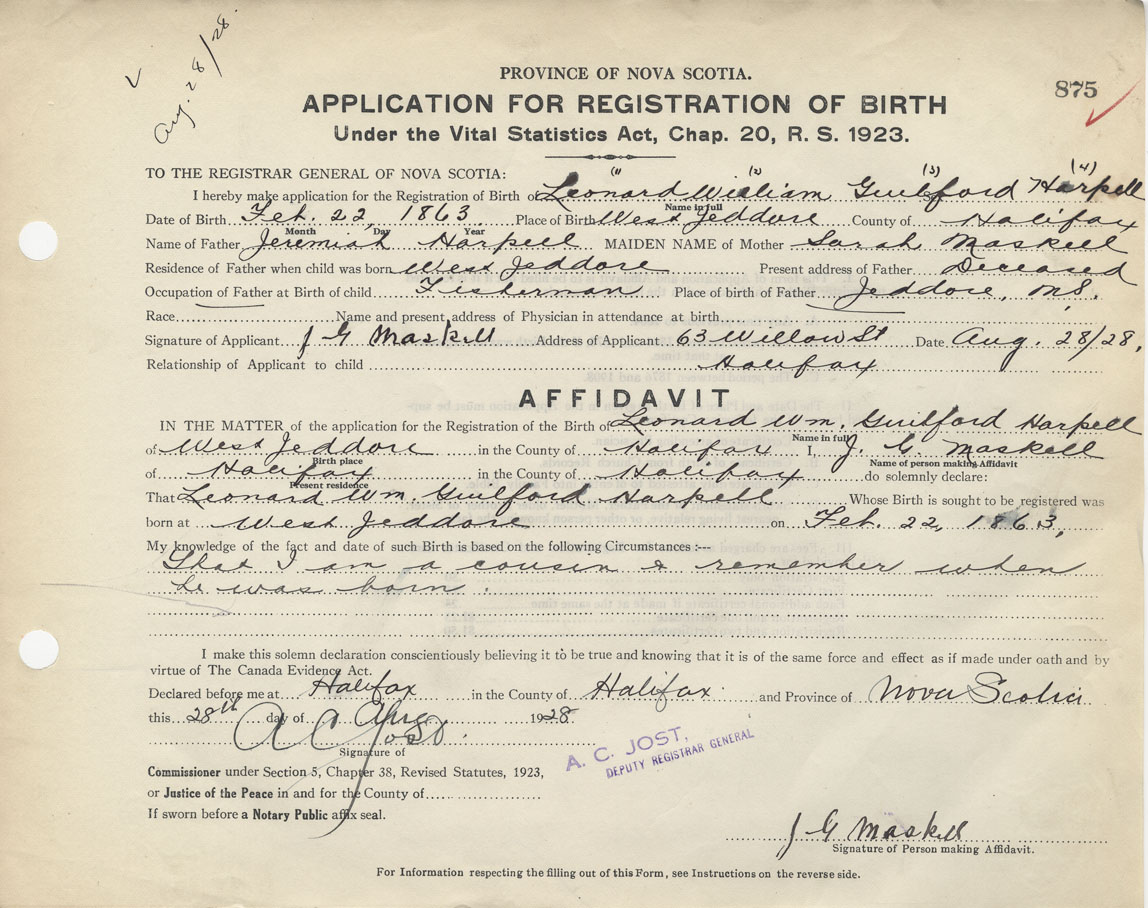 Aug. 28/28.
PROVINCE OF NOVA SCOTIA.
875
APPLICATION FOR REGISTRATION OF BIRTH
Under the Vital Statistics Act, Chap. 20, R. S. 1923.
TO THE REGISTRAR GENERAL OF NOVA SCOTIA:
(1) (2) (3) (4)
I hereby make application for the Registration of Birth of Leonard William Guilford Harpell
Name in full
Date of Birth Feb. 22, 1863 Place of Birth West Jeddore County of Halifax
Month Day Year
Name of Father Jeremiah Harpell MAIDEN NAME of Mother Sarah Maskell
Residence of Father when child was born West Jeddore Present address of Father Deceased
Occupation of Father at Birth of child Fisherman Place of birth of Father Jeddore, N.S.
Race Name and present address of Physician in attendance at birth
Signature of Applicant J G Maskell Address of Applicant 63 Willow St Date Aug. 28/28,
Relationship of Applicant to child Halifax
AFFIDAVIT
IN THE MATTER of the application for the Registration of the Birth of Leonard Wm. Guilford Harpell
Name in full
of West Jeddore in the County of Halifax I, J. G. Maskell
Birth place Name of person making Affidavit
of Halifax in the County of Halifax do solemnly declare:
Present residence
That Leonard Wm. Guilford Harpell Whose Birth is sought to be registered was
born at West Jeddore on Feb. 22, 1863,
My knowledge of the fact and date of such Birth is based on the following Circumstances :---
That I am a cousin & remember when
he was born.
I make this solemn declaration conscientiously believing it to be true and knowing that it is of the same force and effect as if made under oath and by
virtue of The Canada Evidence Act.
Declared before me at Halifax in the County of Halifax and Province of Nova Scotia
this 28th day of Aug 1928.
A C Jost.
Signature of
A. C. JOST,
DEPUTY REGISTRAR GENERAL
Commissioner under Section 5, Chapter 38, Revised Statutes, 1923,
or Justice of the Peace in and for the County of
If sworn before a Notary Public affix seal.
J G Maskell
Signature of Person making Affidavit.
For Information respecting the filling out of this Form, see Instructions on the reverse side.